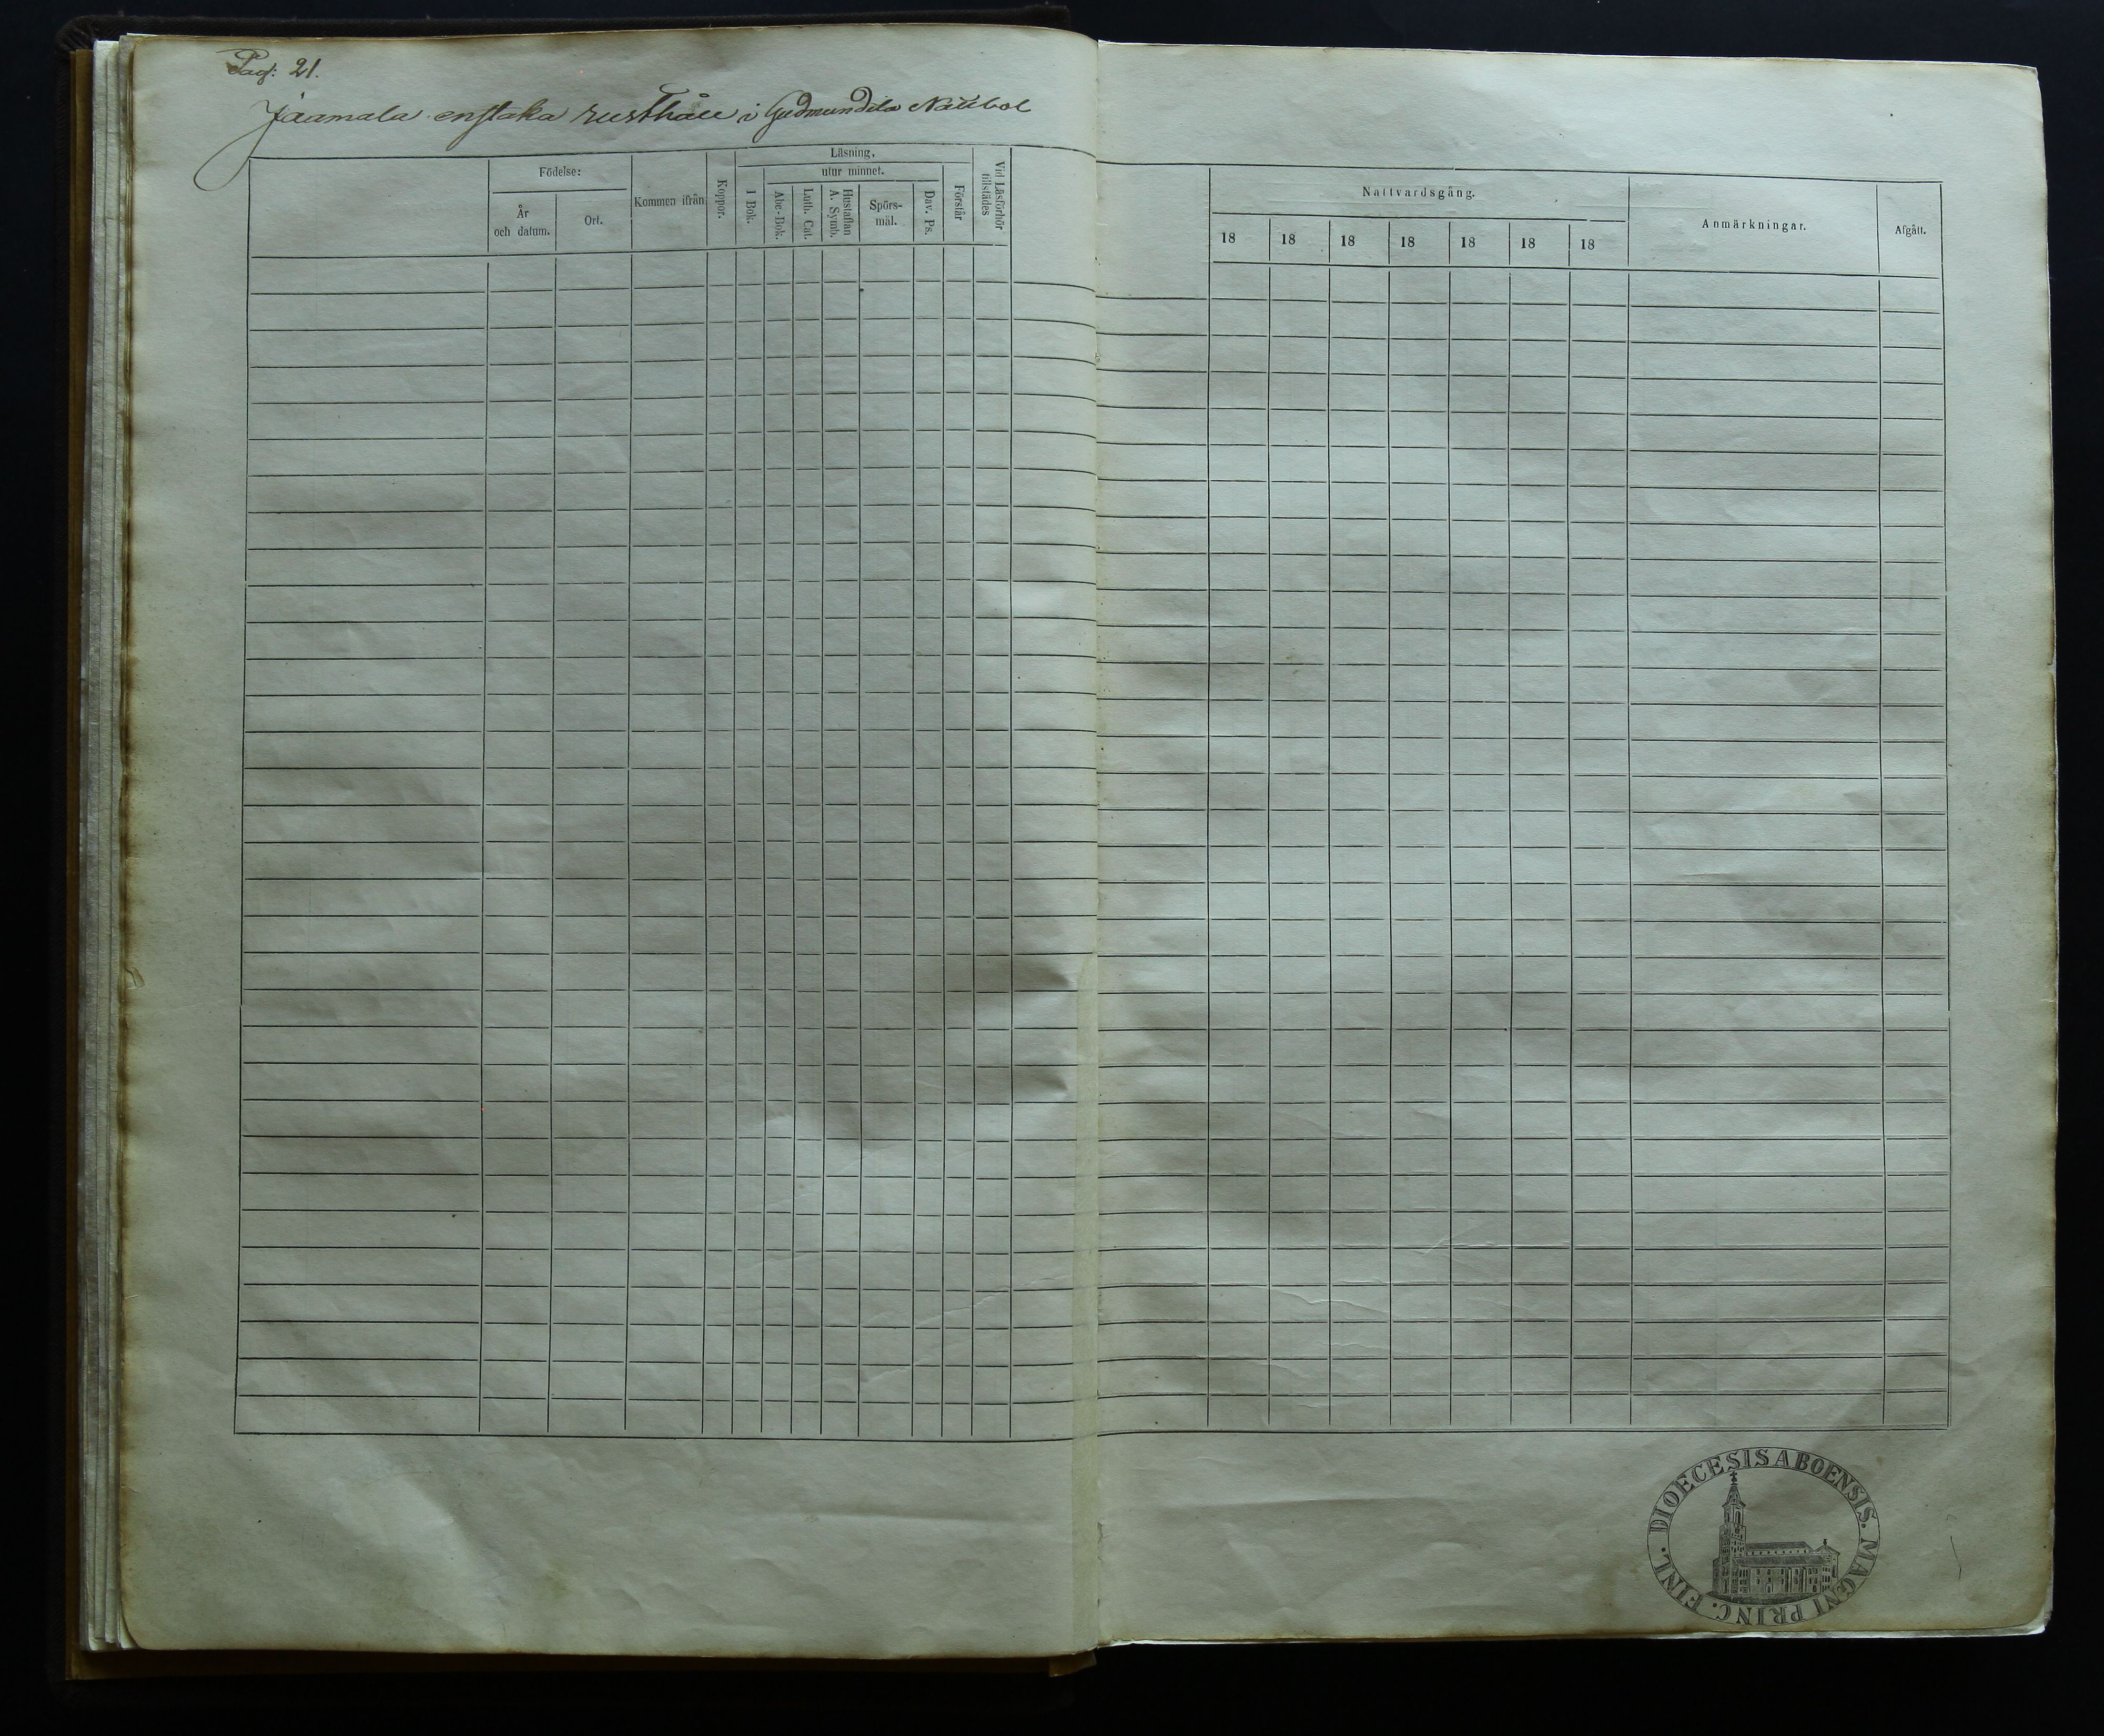 Pag: 21.
Jaamala enstaka rusthåll i Gudmundila Nätibol
Födelse:
År
och datum.
Ort.
Kommen ifrån
Koppor.
Läsning,
utur minnet.
I Bok.
Abc-Bok.
Luth. Cat.
Hustaflan
A. Symb.
Spörs-
mål.
Dav. Ps.
Förstår
Vid Läsförhör
tillstädes
Nattvardsgång.
18 18 18 18 18 18 18
Anmärkningar.
Afgått.
DIOECESIS ABOENSIS. MAGNI PRINC. FINL.